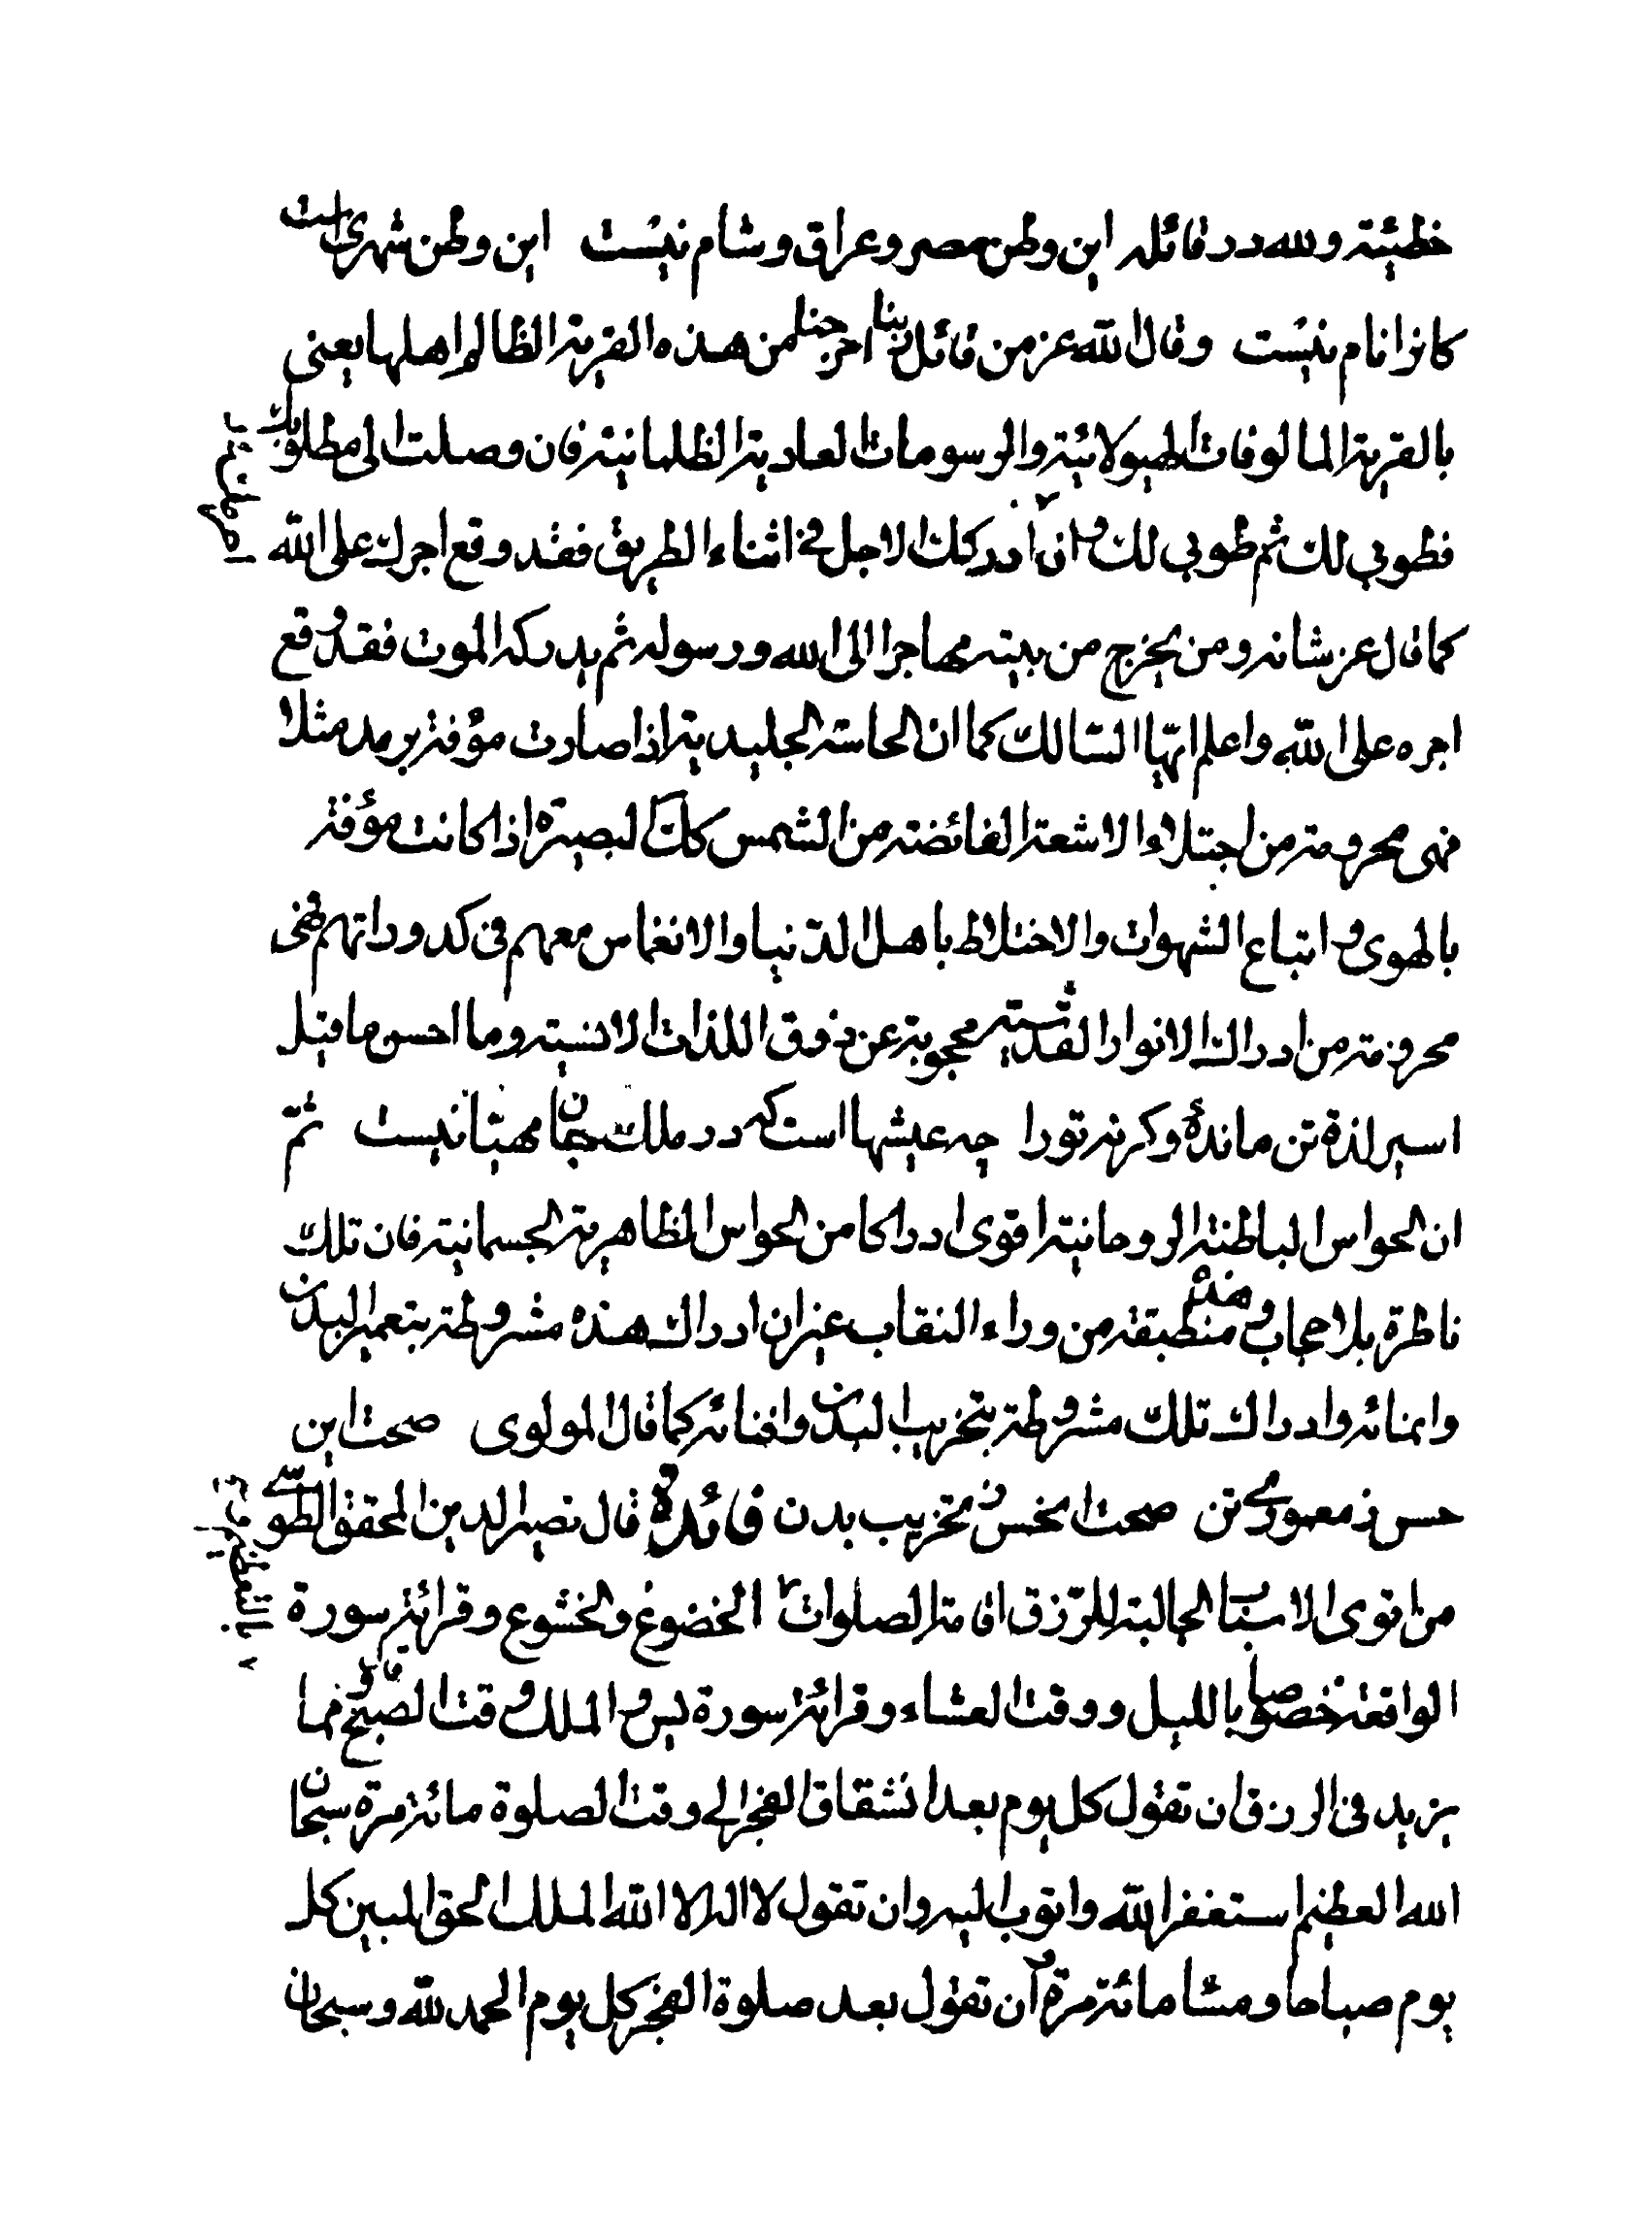 خطيئة ولله در قائله این وطن مصر و عراق و شام نیست این وطن شهری است
کانرا نام نیست وقال الله عز من قائل ربنا اخرجنا من هذه القرية الظالم اهلها يعني
بالقرية المالوفات الهيولائية والرسومات العادية الظلمانية فان وصلت الى مطلوبك
فطوبي لك ثم طوبي لك وان ادركك الاجل في اثناء الطريق فقد وقع اجرك على الله
كما قال عز شانه ومن يخرج من بيته مهاجرا الى الله ورسوله ثم يدركه الموت فقد وقع
اجره على الله واعلم ايها السالك كما ان الحاسة الجليدية اذا صارت مؤفة برمد مثلا
فهى محرومة من اجتلاء الاشعة الفائضة من الشمس كك البصيرة اذا كانت مؤفة
بالهوى و اتباع الشهوات والاختلاط باهل الدنيا والانغماس معهم في كدوراتهم فهي
محرومة من ادراك الانوار القدسية محجوبة عن ذوق اللذات الانسية وما احسن ما قيل
اسیر لذة تن ماندهٔ وکرنه تورا چه عیشها است که در ملك جان مهیا نیست ثم
ان الحواس الباطنة الروحانية اقوى ادراكا من الحواس الظاهرية الجسمانية فان تلك
ناظرة بلا حجاب وهذه منطبقة من وراء النقاب غير ان ادراك هذه مشروطة بتعمير البدن
وانمائه وادراك تلك مشروطة بتخريب البدن وافنائه كما قال المولوى صحت این
حس ز معموری تن صحت ان حس ز تخریب بدن فائدة قال نصير الدين المحقق الطوسي
من اقوى الاسباب الجالبة للرزق اقامة الصلوات الخضوع والخشوع وقرائة سورة
الواقعة خصوصا بالليل ووقت العشاء وقرائة سورة يس و الملك وقت الصبح ومما
يزيد في الرزق ان تقول كل يوم بعد انشقاق الفجر الي وقت الصلوة مائة مرة سبحان
الله العظيم استغفر الله واتوب اليه وان تقول لا اله الا الله الملك الحق المبين كل
يوم صباحا ومسا مائة مرة وان تقول بعد صلوة الفجر كل يوم الحمد لله وسبحان